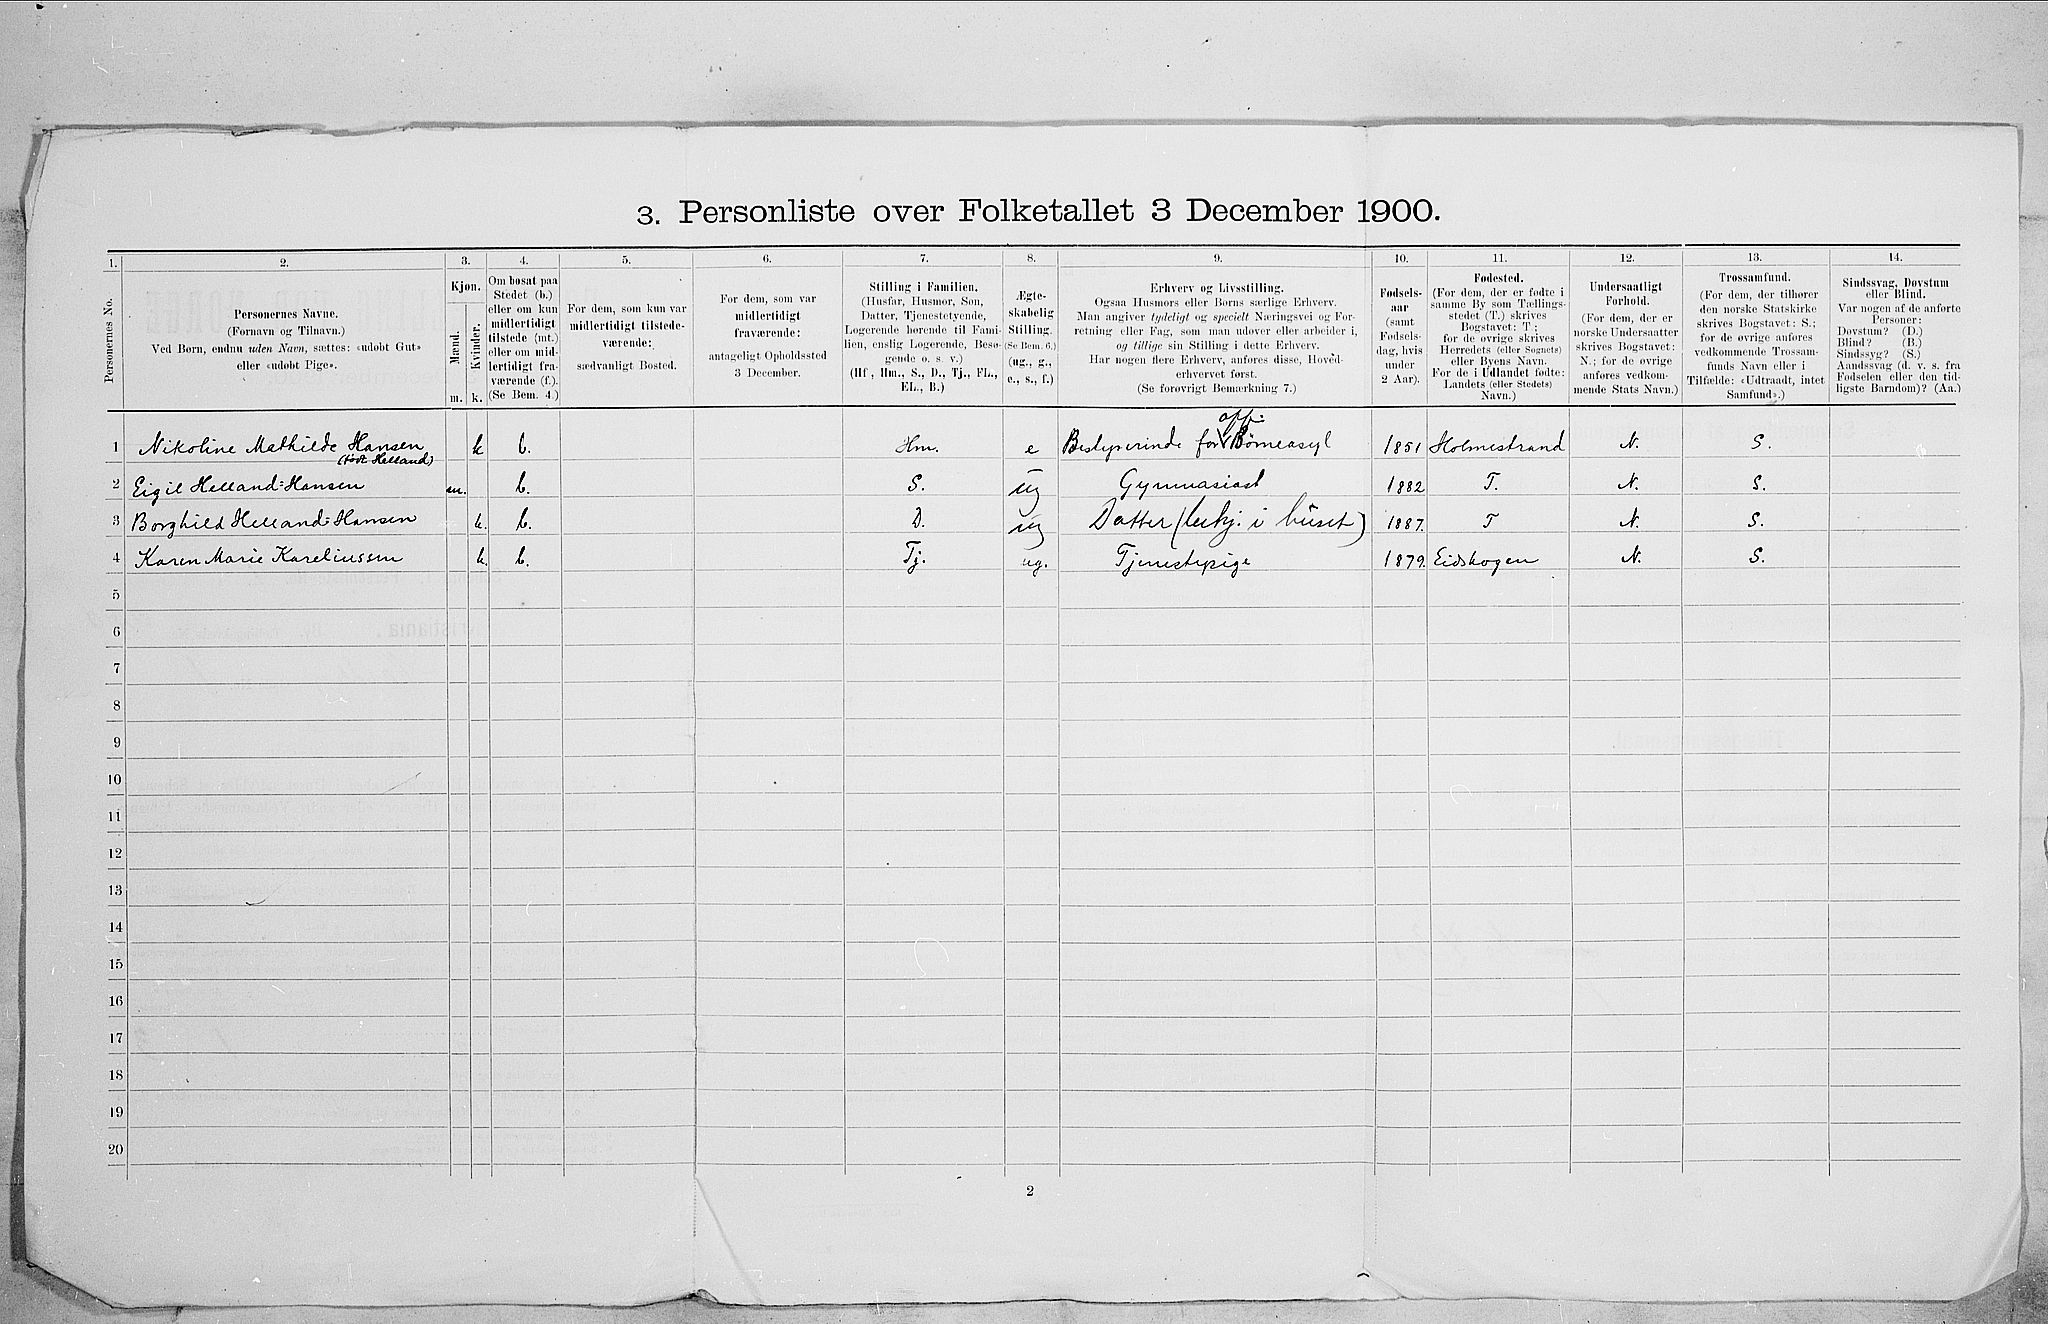 3. Personliste over Folketallet 3 December 1900.
1. 2. 3. 4. 5. 6. 7. 8. 9. 10. 11. 12. 13. 14.
Personernes No.
Personernes Navne.
(Fornavn og Tilnavn.)
Ved Børn, endnu uden Navn, sættes: «udøbt Gut»
eller «udøbt Pige».
Kjøn.
Mænd.
Kvinder.
m. k.
Om bosat paa
Stedet (b.)
eller om kun
midlertidigt
tilstede (mt.)
eller om mid-
lertidigt fra-
værende (f.).
(Se Bem. 4.)
For dem, som kun var
midlertidigt tilstede-
værende:
sædvanligt Bosted.
For dem, som var
midlertidigt
fraværende:
antageligt Opholdssted
3 December.
Stilling i Familien.
(Husfar, Husmor, Søn,
Datter, Tjenestetyende,
Logerende hørende til Fami-
lien, enslig Logerende, Besø-
gende o. s. v.)
(Hf., Hm., S., D., Tj., FL.,
EL., B.)
Ægte-
skabelig
Stilling.
(Se Bem. 6.)
(ug., g.,
e., s., f.)
Erhverv og Livsstilling.
Ogsaa Husmors eller Børns særlige Erhverv.
Man angiver tydeligt og specielt Næringsvei og For-
retning eller Fag, som man udøver eller arbeider i,
og tillige sin Stilling i dette Erhverv.
Har nogen flere Erhverv, anføres disse, Hoved-
erhvervet først.
(Se forøvrigt Bemærkning 7.)
Fødsels-
aar
(samt
Fødsels-
dag, hvis
under
2 Aar).
Fødested.
(For dem, der er fødte i
samme By som Tællings-
stedet (T.) skrives
Bogstavet: T;
for de øvrige skrives
Herredets (eller Sognets)
eller Byens Navn.
For de i Udlandet fødte:
Landets (eller Stedets)
Navn.)
Undersaatligt
Forhold.
(For dem, der er
norske Undersaatter
skrives Bogstavet:
N.; for de øvrige
anføres vedkom-
mende Stats Navn.)
Trossamfund.
(For dem, der tilhører
den norske Statskirke
skrives Bogstavet: S.;
for de øvrige anføres
vedkommende Trossam-
funds Navn eller i
Tilfælde: «Udtraadt, intet
Samfund».)
Sindssvag, Døvstum
eller Blind.
Var nogen af de anførte
Personer:
Døvstum? (D.)
Blind? (B.)
Sindssyg? (S.)
Aandssvag (d. v. s. fra
Fødselen eller den tid-
ligste Barndom)? (Aa.)
off.
1 Nikoline Mathilde Hansen k b. Hm. e Bestyrerinde for Børneasyl 1851 Holmestrand N. S.
(født Helland)
2 Eigil Helland-Hansen m. b. S. ug Gymnasiast 1882 T. N. S.
3 Borghild Helland-Hansen k. b. D. ug Datter (beskj. i huset) 1887. T N. S.
4 Karen Marie Kareliussen k. b. Tj. ug. Tjenestepige 1879. Eidskogen N. S.
5
6
7
8
9
10
11
12
13
14
15
16
17
18
19
20
2